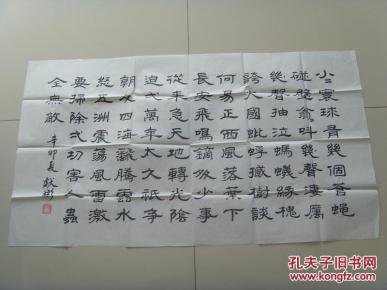 小二寰球有幾個蒼蠅
碰壁嗡二叫幾聲淒厲
幾聲抽泣螞蟻緣槐
誇大國蚍蜉撼樹談
何易正西風落葉下
長安飛鳴鏑多少事
從來急天地轉光陰
迫弌萬年太久祇爭
朝夕四海翻騰雲水
怒五洲震蕩風雷激
要掃除弌切害人蟲
全無敵 辛卯夏
孔夫子旧书网